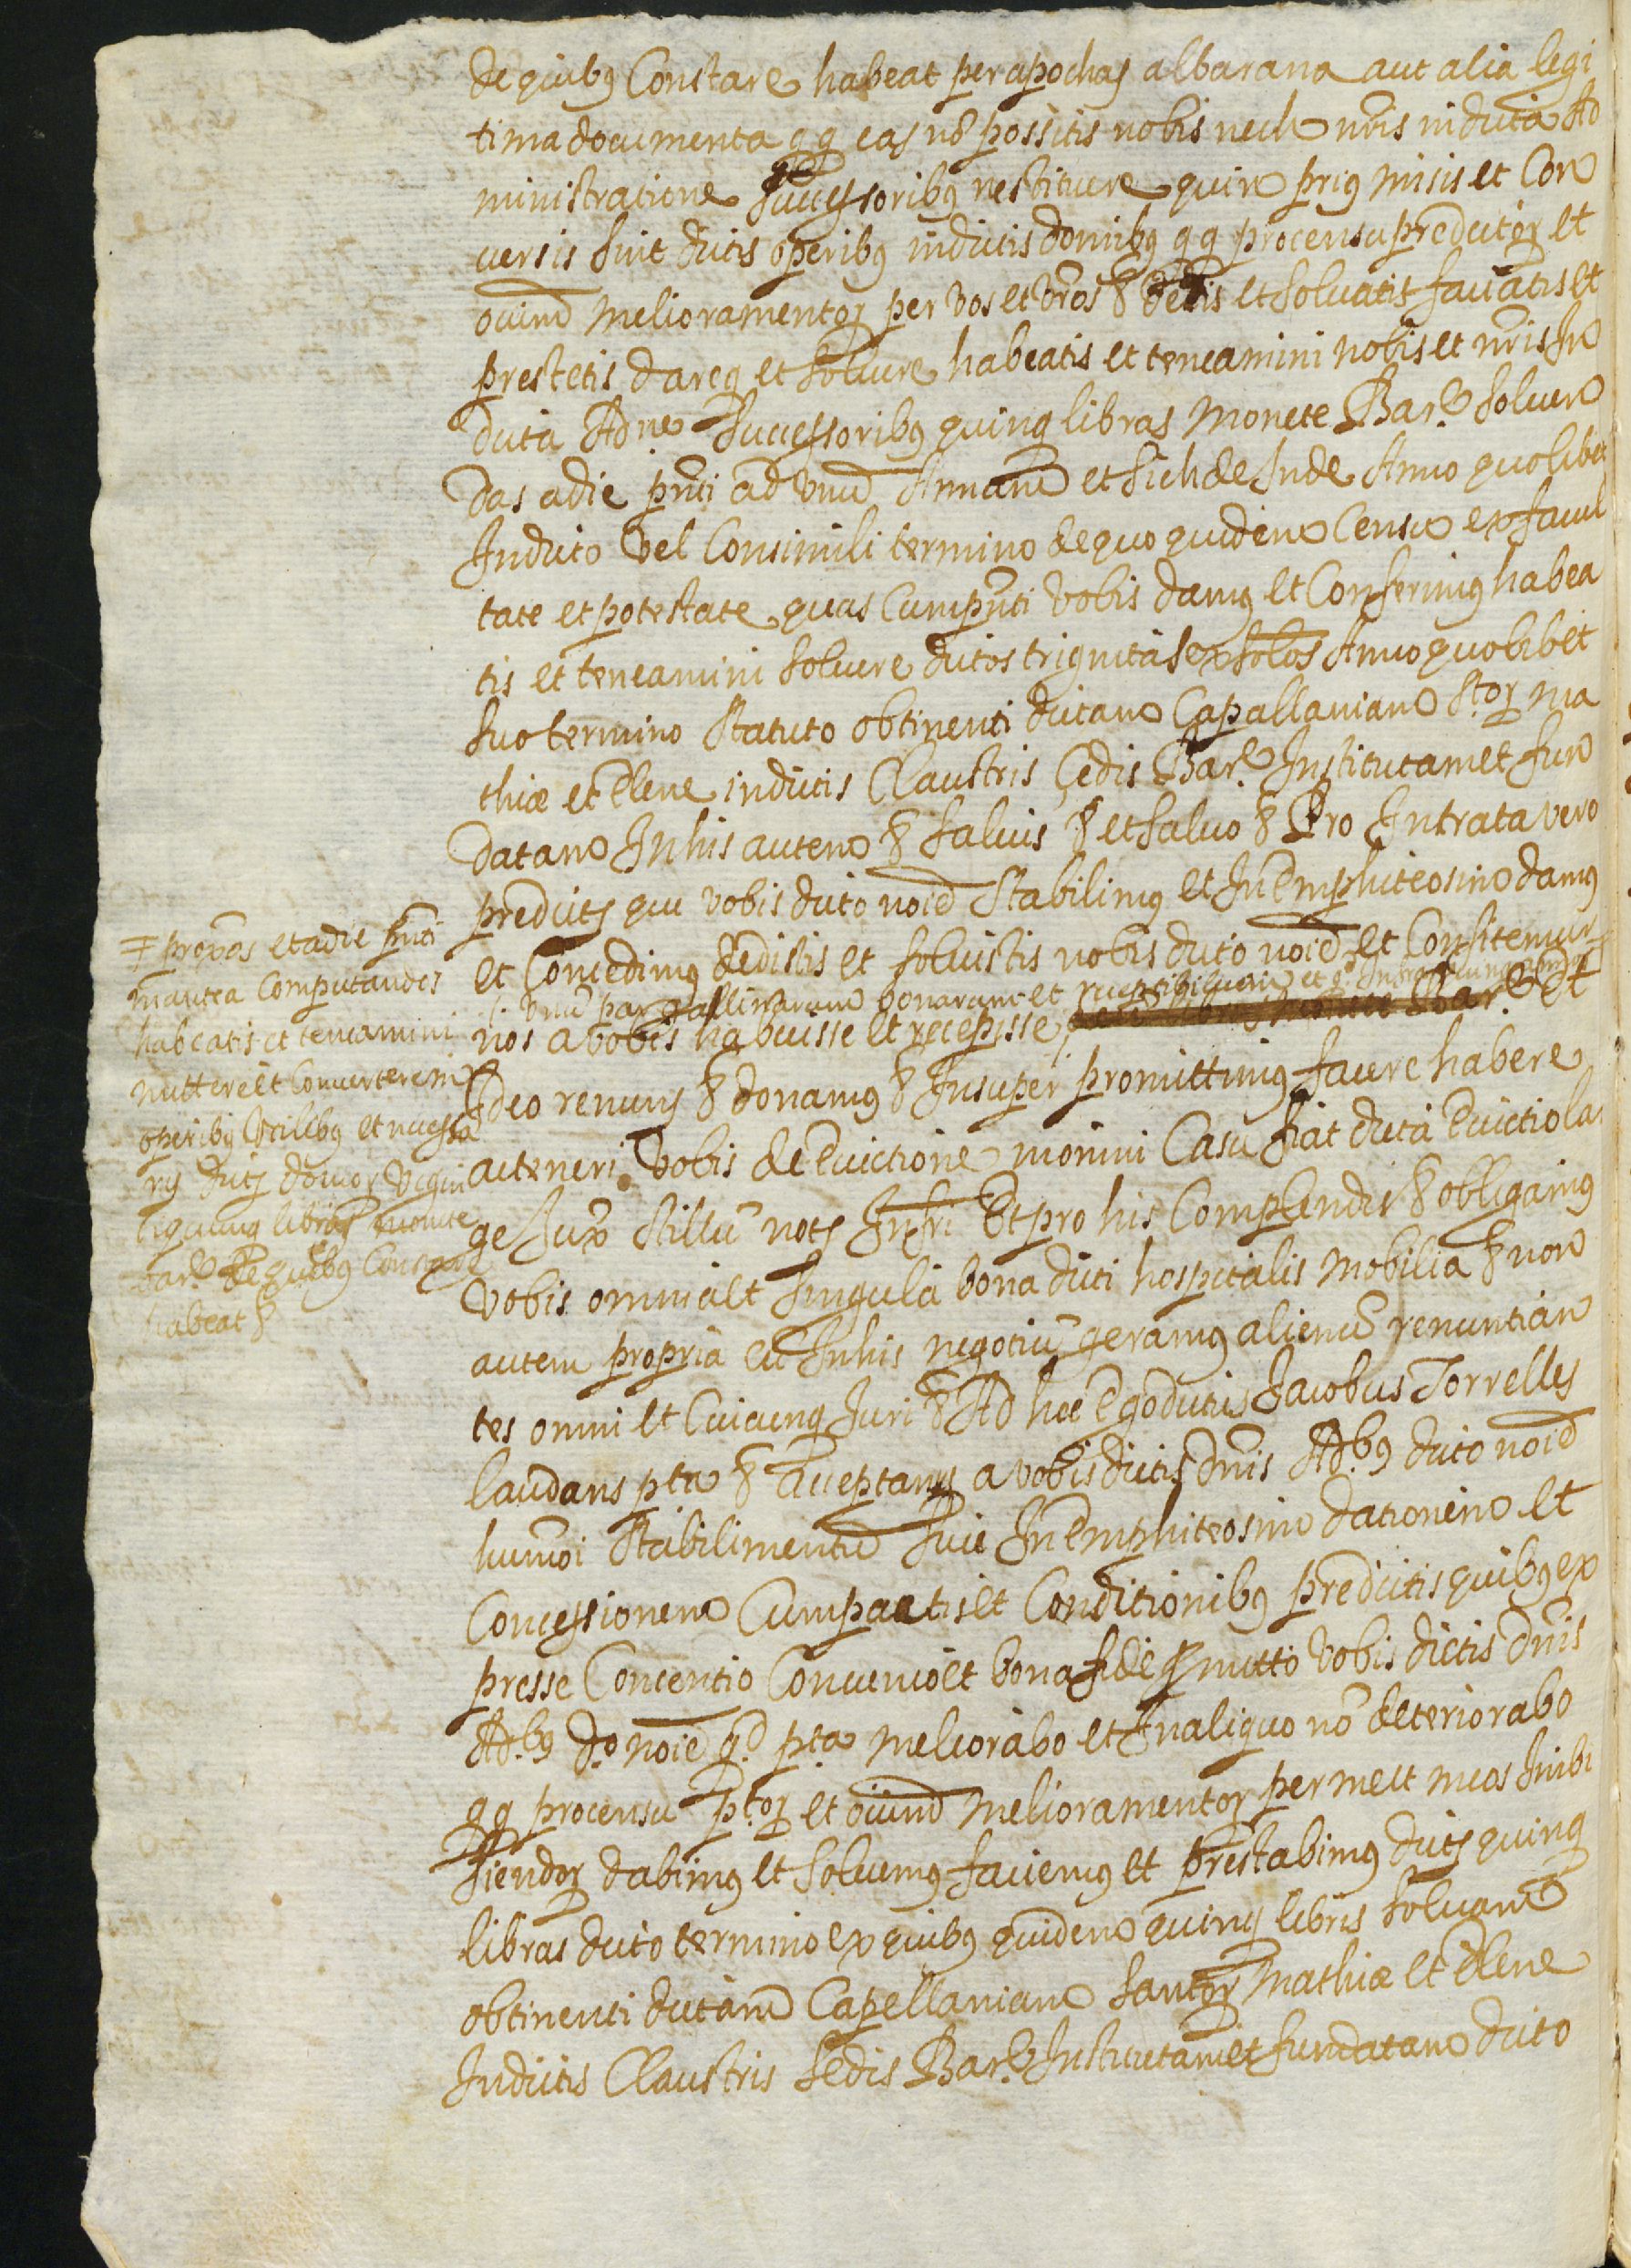 de quibus Constare habeat per apochas albarana aut alia legi
tima documenta q q eas nō possitis nobis nech nr̄is in dicta Ad
ministratione successoribus restituere quin prius misis et Con
uersis sint dictis operibus in dictis domibus q q pro censu predictor et
oium̄ melioramentor per vos et vr̄os & detis et soluatis faciatis et
prestetis dareq et soluere habeatis et teneamini nobis et nr̄is In
dicta Ad.ne successoribus quinq libras monete Bar.e soluen
das a die pn̄ti ad vnū Annum et sich de Inde Anno quolibet
In dicto vel Consimili termino de quo quidem Censu ex facul
tate et potestate quas Cum pn̄ti vobis damus et Conferimus habea
tis et teneamini soluere dictos triginta sex solos Anno quolibet
suo termino statuto obtinenti dictam Capallaniam St.or ma
thiæ et Elene in dictis Claustris Sedis Bar.e Institutam et fun
datam In his autem & saluis & et saluo & Pro Intrata vero
predictis que vobis dicto noīe Stabilimus et In Emphiteosim damus
et Concedimus dedistis et soluistis nobis dicto noīe et Confitemur
/. vnū par gallinarum bonarum et receptibilium et
nos a vobis habuisse et recepisse, Bar.e Et
Ideo renuns & donamus & Insuper promittimus facere habere
ac teneri vobis de Euictione in omni Casu fiat dicta Euictio la
ge Iux stillū notis Infri Et pro his Complendis & obligamus
vobis omnia et singula bona dicti hospitalis mobilia & non
autem propria cū In his negotiū geramus alienū renuntian
tes omni et Cuicunq Juri & Ad hec Ego dictus Jacobus Torrelles
laudans pta & acceptans a vobis dictis dn̄is Ad.bus dicto noīe
humōi Stabilimentū siue In Emphiteosim dationem et
Concessionem Cum pactis et Conditionibus predictis quibus ex
presse Concentio Conuenio et bona fide pmitto vobis dictis dn̄is
Ad.bus d.o noīe q.d pta meliorabo et In aliquo nō deteriorabo
q q pro censu pt.or et oium̄ melioramentor per me et meos Inibi
fiendor dabimus et soluemus faciemus et prestabimus dictis quinq
libras dicto termino ex quibus quidem quinq libris soluam
obtinenti dictam Capellaniam Santor Mathiæ et Elene
In dictis Claustris Sedis Bar.e Institutam et fundatam dicto
≠ pro vos et a die pn̄ti
in antea Computandos
habeatis et teneamini
mittere et Conuertere in
operibus vtilibus et necessa
rijs dictis domor vigin
ti quinq libras monete
Bar.e de quibus Constare
habeat &